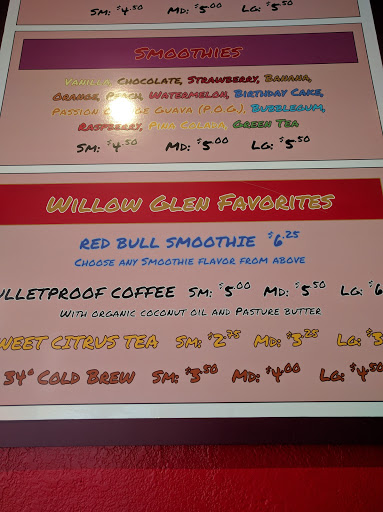 SM: $4.50 MD: $5.00 LG: $5.50
SMOOTHIES
VANILLA, CHOCOLATE, STRAWBERRY, BANANA,
ORANGE, PEACH, WATERMELON, BIRTHDAY CAKE,
PASSION ORANGE GUAVA (P.O.G.), BUBBLEGUM,
RASPBERRY, PINA COLADA, GREEN TEA
SM: $4.50 MD: $5.00 LG: $5.50
WILLOW GLEN FAVORITES
RED BULL SMOOTHIE $6.25
CHOOSE ANY SMOOTHIE FLAVOR FROM ABOVE
ULLETPROOF COFFEE SM: $5.00 MD: $5.50 LG: $6
WITH ORGANIC COCONUT OIL AND PASTURE BUTTER
WEET CITRUS TEA SM: $2.75 MD: $3.25 LG: $3
34° COLD BREW SM: $3.50 MD: $4.00 LG: $4.50